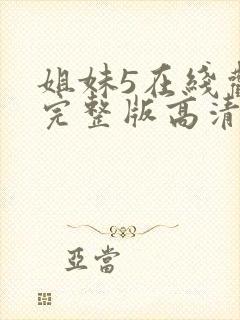 姐妹5在綫
完整版高清
亞當